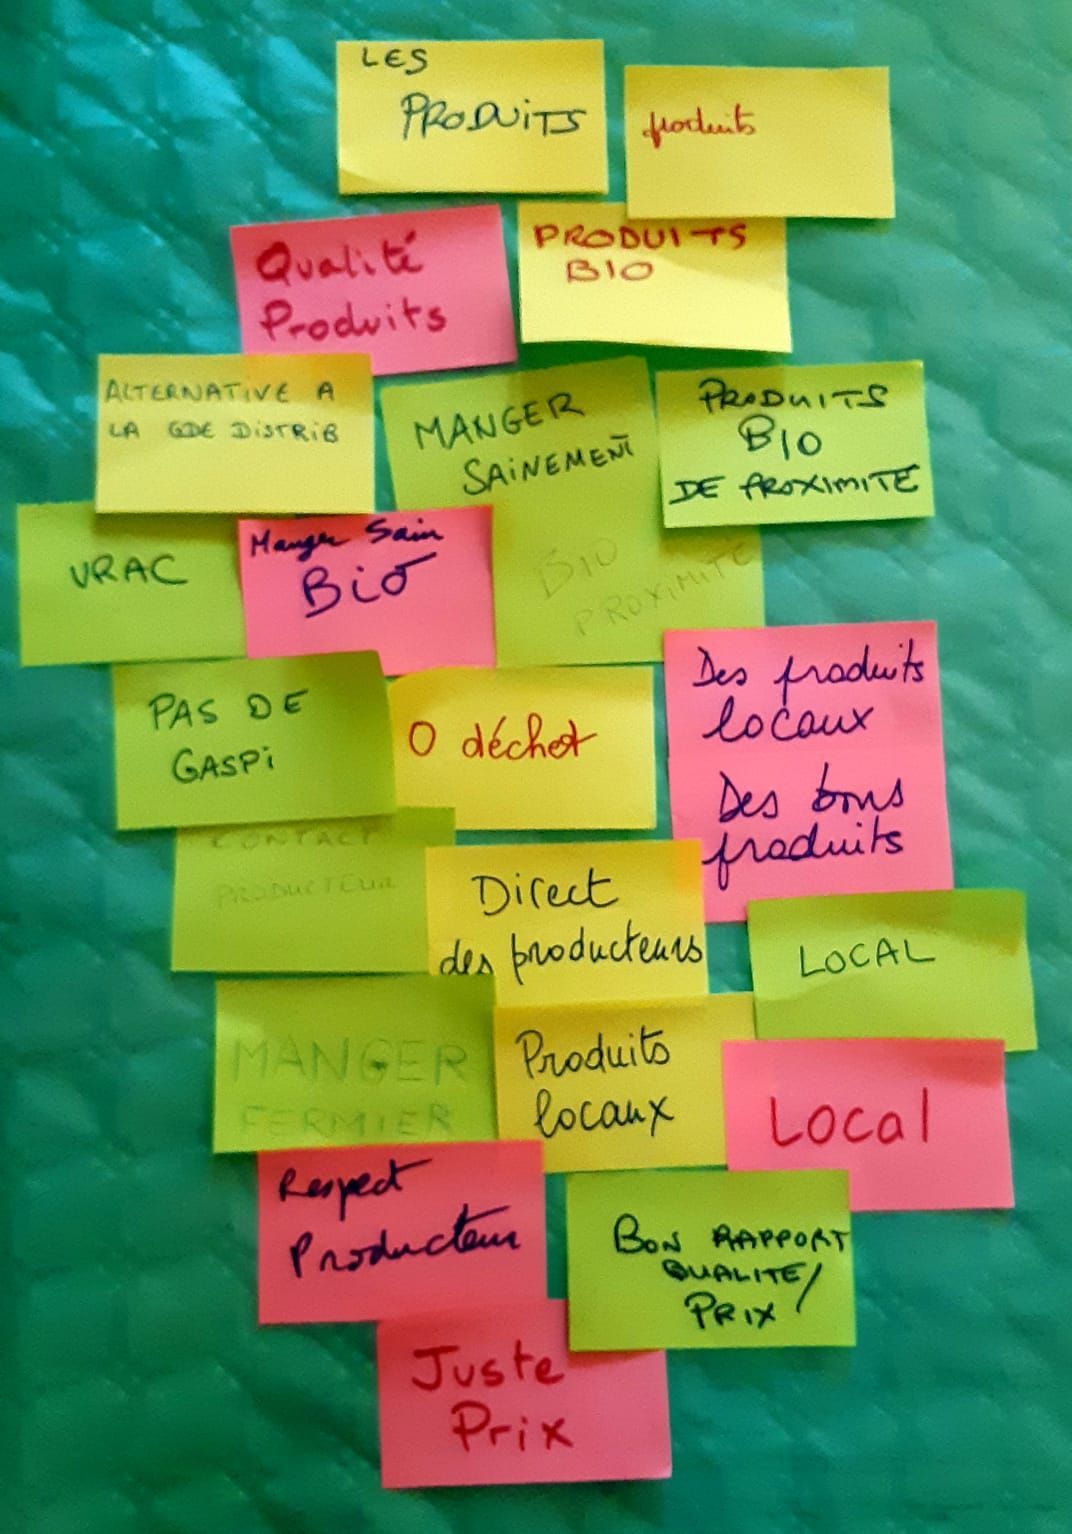 LES
PRODUITS
produits
Qualité
Produits
PRODUITS
BIO
ALTERNATIVE A
LA GDE DISTRIB
MANGER
SAINEMENT
PRODUITS
BIO
DE PROXIMITE
VRAC
Manger Sain
Bio
BIO
PROXIMITÉ
PAS DE
GASPi
O déchet
Des produits
locaux
Des bons
produits
CONTACT
PRODUCTEUR
Direct
des producteurs
LOCAL
MANGER
FERMIER
Produits
locaux
Local
Respect
Producteur
BON RAPPORT
QUALITE/
PRIX
Juste
Prix